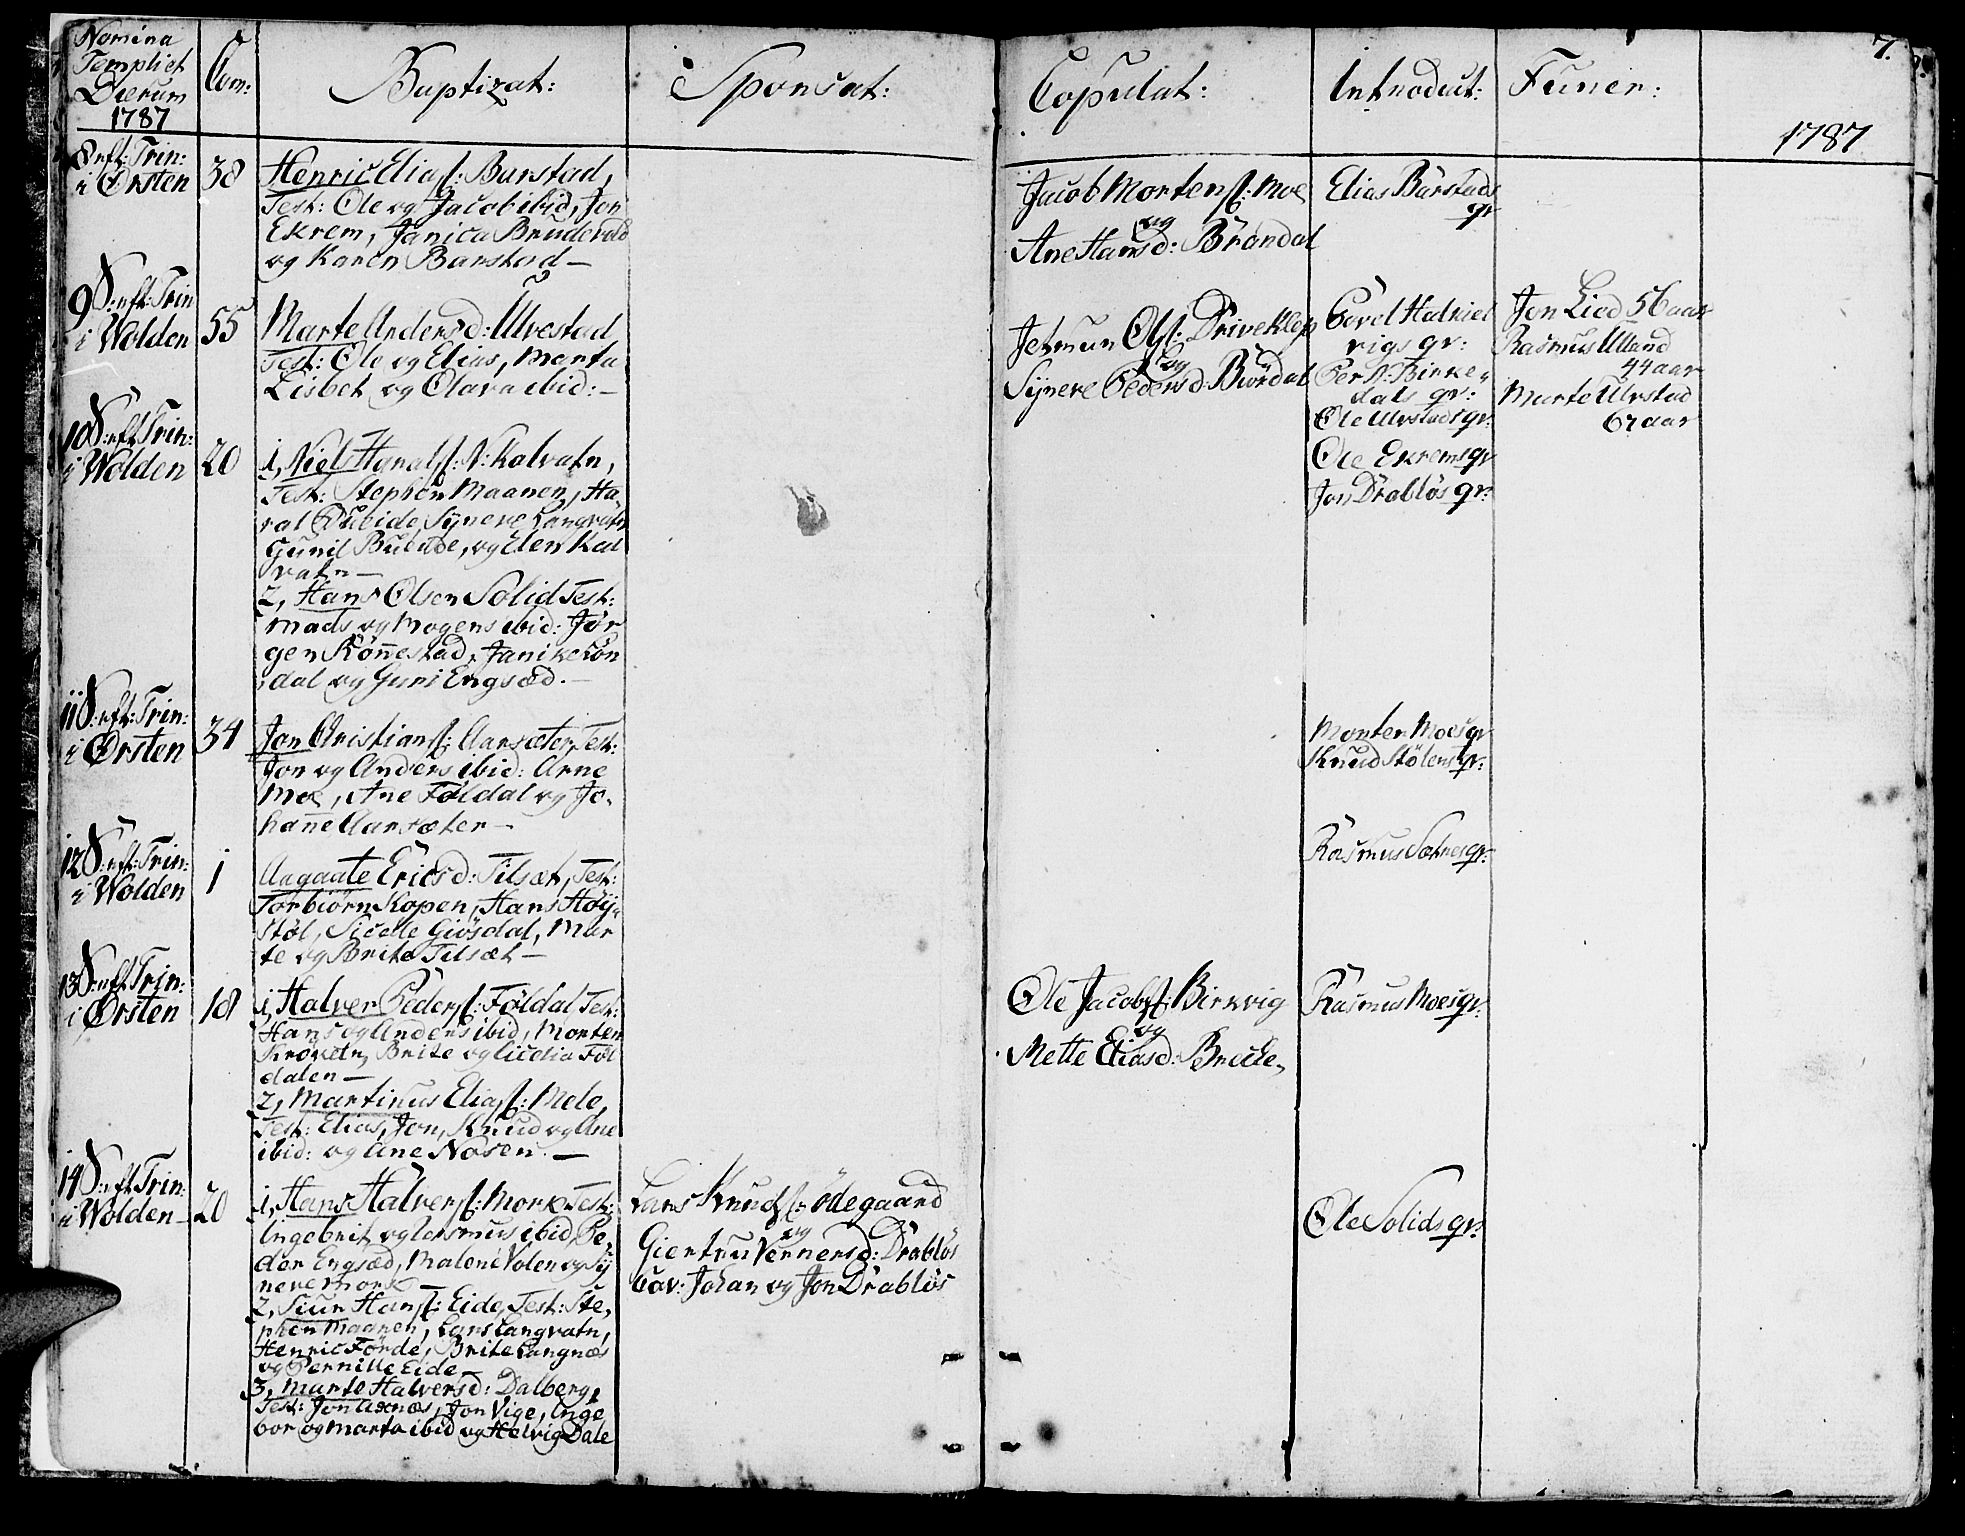 Nomina
Templiet
Dierum
1787
Com:
Baptizat:
Sponsat:
Copulat:
Introduct:
Funer:
7.
1787
8 eft: Trin:
i Ørsten
38
Henric Elias: Barstad,
Test: Ole og Jacob ibid, Jon
Ekrem, Janica Brudevold
og Karen Barstad —
Jacob Mortens: Moe
og
Ane Hansd: Brandal
Elias Barstads
gr
9 S: eft: Trin
i Wolden
55
Marte Andersd: Ulvestad
Test: Ole og Elias, Marta
Lisbet og Olava ibid: —
Jetmun Ols: Driveklep
og
Synere Pedersd: Biørdal
Povel Halkiel
rigs gr:
Per A: Birke
dals gr:
Ole Ulvstads gr:
Jon Lied 56 aar
Rasmus Ulland
44 aar
Marte Ulvstad
67 aar
10 S: eft: Trin:
i Wolden
20
1, Niels Harals: N: Kalvatn,
Test: Stephen Maanen, Ha-
ral Ø: Eide, Synere Langvatn
Gunil Bubide, og Elen Kal
vatn —
2, Hans Olsen Solid Test:
Mads og Mogens ibid: Jør
gen Rönnestad, Janike Løn
dal og Guri Engsæd. —
Ole Ekrems gr
Jon Drabløs gr:
11 S: eft: Trin:
i Ørsten
34
Jon Christians: Aarsæter, Test:
Jon og Anders ibid: Arne
Moe, Ane Følldal og Jo-
hanne Aarsæter —
Morten Moes gr
Knud Stølens gr:
12 S: eft: Trin:
i Wolden
1
Aagaate Ericsd: Tilsæt, Test:
Torbiørn Kopen, Hans Høy-
støl, Sicele Giøsdal, Mar
te og Brite Tilsæt —
Rasmus Sætres gr:
13 S: eft: Trin:
i Ørsten
18
1, Halver Peders: Følldal Test:
Hans og Anders ibid, Morten
Krøvtn, Brite og Licelia Føl
dalen —
2, Martinus Elias: Mele,
Test: Elias, Jon, Knud og Ane
ibid: og Ane Nosen. —
Ole Jacobs: Birkvig
og
Mette Eliasd: Breche,
Rasmus Moes gr:
14 S: eft: Trin:
i Wolden —
20
1, Hans Halvers: Mork Test:
Ingebrit og Rasmus ibid, Pe-
der Engsæd, Malene Volen og Sy
nere Mork —
2, Siur Hans: Eide, Test: Ste-
phen Maanen, Lars Langvatn,
Henric Førde, Brite Langnæs
og Pernille Eide
3, Marte Halversd: Dalberg,
Test: Jon Aasnæs, Jon Vige, Inge
bor og Marta ibid og Helvig Dale
Lars Knuds: Ødegaard
og
Giertru Vernersd: Drabløs
Cav: Johan og Jon Drabløs
Ole Solids gr: